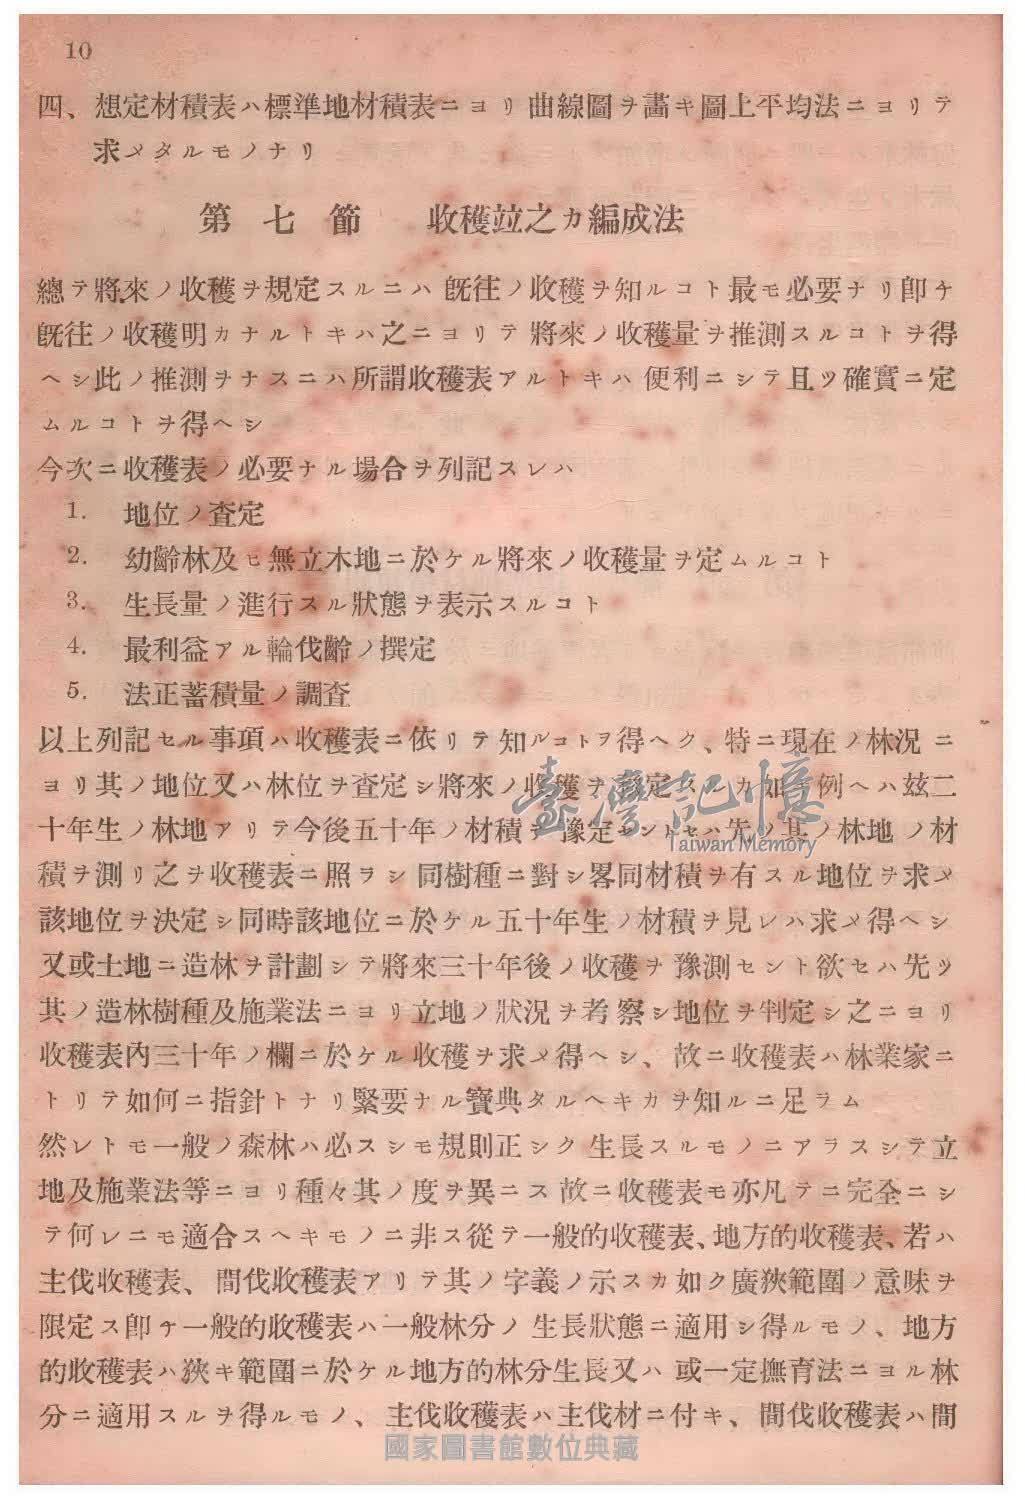 10
四、想定材積表ハ標準地材積表ニヨリ曲線圖ヲ畵キ圖上平均法ニヨリテ
求メタルモノナリ
第七節　收穫竝之カ編成法
總テ將來ノ收穫ヲ規定スルニハ旣往ノ收穫ヲ知ルコト最モ必要ナリ卽チ
旣往ノ收穫明カナルトキハ之ニヨリテ將來ノ收穫量ヲ推測スルコトヲ得
ヘシ此ノ推測ヲナスニハ所謂收穫表アルトキハ便利ニシテ且ツ確實ニ定
ムルコトヲ得ヘシ
今次ニ收穫表ノ必要ナル場合ヲ列記スレハ
1.　地位ノ査定
2.　幼齡林及ヒ無立木地ニ於ケル將來ノ收穫量ヲ定ムルコト
3.　生長量ノ進行スル狀態ヲ表示スルコト
4.　最利益アル輪伐齡ノ撰定
5.　法正蓄積量ノ調査
以上列記セル事項ハ收穫表ニ依リテ知ルコトヲ得ヘク、特ニ現在ノ林況ニ
ヨリ其ノ地位又ハ林位ヲ査定シ將來ノ收穫ヲ豫定スルカ如シ例ヘハ玆二
十年生ノ林地アリテ今後五十年ノ材積ヲ豫定セントセハ先ツ其ノ林地ノ材
積ヲ測リ之ヲ收穫表ニ照ラシ同樹種ニ對シ畧同材積ヲ有スル地位ヲ求メ
該地位ヲ決定シ同時該地位ニ於ケル五十年生ノ材積ヲ見レハ求メ得ヘシ
又或土地ニ造林ヲ計劃シテ將來三十年後ノ收穫ヲ豫測セント欲セハ先ツ
其ノ造林樹種及施業法ニヨリ立地ノ狀況ヲ考察シ地位ヲ判定シ之ニヨリ
收穫表內三十年ノ欄ニ於ケル收穫ヲ求メ得ヘシ、故ニ收穫表ハ林業家ニ
トリテ如何ニ指針トナリ緊要ナル寶典タルヘキカヲ知ルニ足ラム
然レトモ一般ノ森林ハ必スシモ規則正シク生長スルモノニアラスシテ立
地及施業法等ニヨリ種々其ノ度ヲ異ニス故ニ收穫表モ亦凡テニ完全ニシ
テ何レニモ適合スヘキモノニ非ス從テ一般的收穫表、地方的收穫表、若ハ
主伐收穫表、間伐收穫表アリテ其ノ字義ノ示スカ如ク廣狹範圍ノ意味ヲ
限定ス卽チ一般的收穫表ハ一般林分ノ生長狀態ニ適用シ得ルモノ、地方
的收穫表ハ狹キ範圍ニ於ケル地方的林分生長又ハ或一定撫育法ニヨル林
分ニ適用スルヲ得ルモノ、主伐收穫表ハ主伐材ニ付キ、間伐收穫表ハ間
臺灣記憶
Taiwan Memory
國家圖書館數位典藏